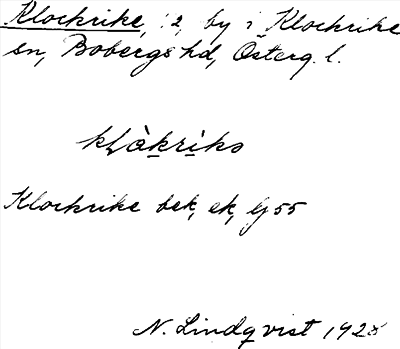 Klockrike, 2, by i Klockrike
sn, Bobergs hd, Österg. l.
kḷàkrìks
Klockrike bek, ek, Ij 55
N. Lindqvist 1928